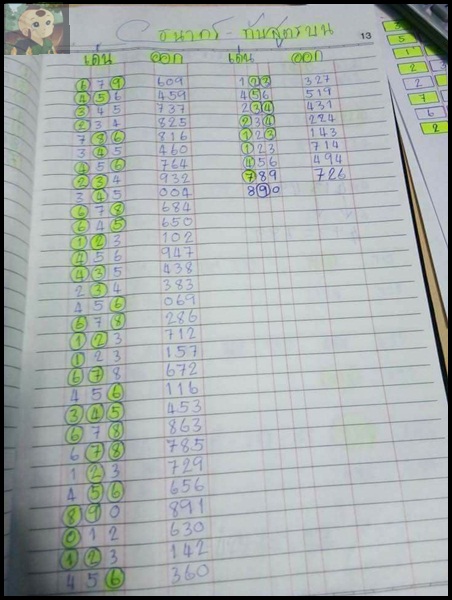 ธนากร - ทับสูตรบน
13
เด่น ออก เด่น ออก
679 609 123 327
456 459 456 519
345 737 234 431
234 825 234 284
786 816 123 143
345 460 123 714
456 764 456 494
234 932 789 726
345 004 890
678 684
645 650
123 102
456 947
435 438
234 383
456 069
678 286
123 712
123 157
678 672
456 116
345 453
678 863
678 785
123 729
456 656
890 891
012 630
123 142
456 360